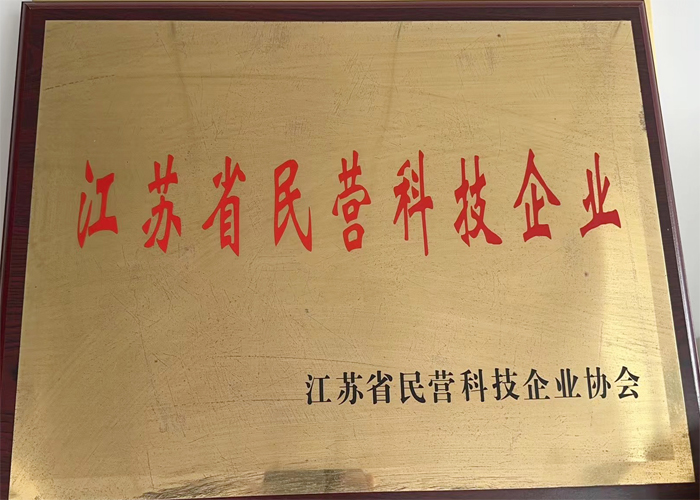 江苏省民营科技企业
江苏省民营科技企业协会